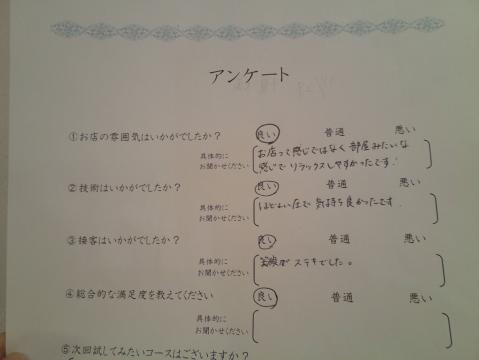 アンケート
①お店の雰囲気はいかがでしたか？ 良い 普通 悪い
具体的に
お聞かせください
お店って感じではなく部屋みたいな
感じでリラックスしやすかったです！
②技術はいかがでしたか？ 良い 普通 悪い
具体的に
お聞かせください
ほどよい圧で気持ち良かったです
③接客はいかがでしたか？ 良い 普通 悪い
具体的に
お聞かせください
笑顔がステキでした。
④総合的な満足度を教えてください 良い 普通 悪い
具体的に
お聞かせください
⑤次回試してみたいコースはございますか？